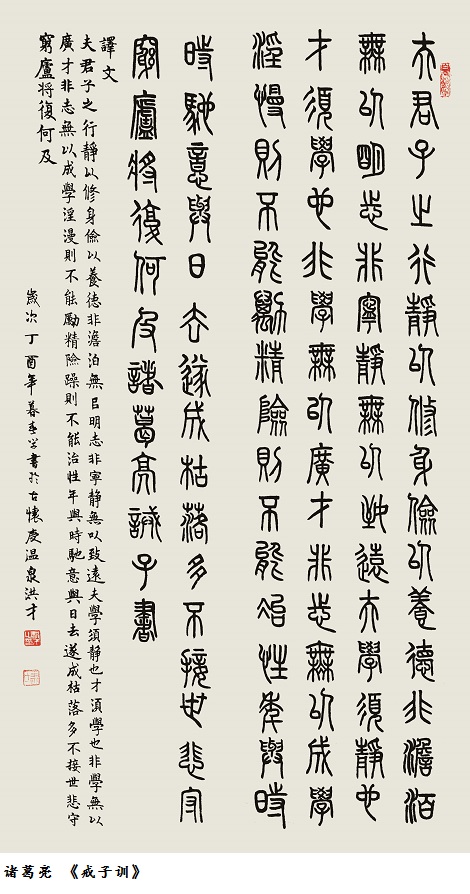 夫君子之行靜以修身儉以養德非澹泊
無以明志非寧靜無以致遠夫學須靜也
才須學也非學無以廣才非志無以成學
淫慢則不能勵精險則不能冶性年與時
時馳意與日去遂成枯落多不接世悲守
窮廬將復何及諸葛亮誡子書
譯文
夫君子之行靜以修身儉以養德非澹泊無以明志非寧靜無以致遠夫學須靜也才須學也非學無以
廣才非志無以成學淫漫則不能勵精險躁則不能治性年與時馳意與日去遂成枯落多不接世悲守
窮廬將復何及
歲次丁酉年暮春學書於古懷慶温泉洪才
诸葛亮 《戒子训》